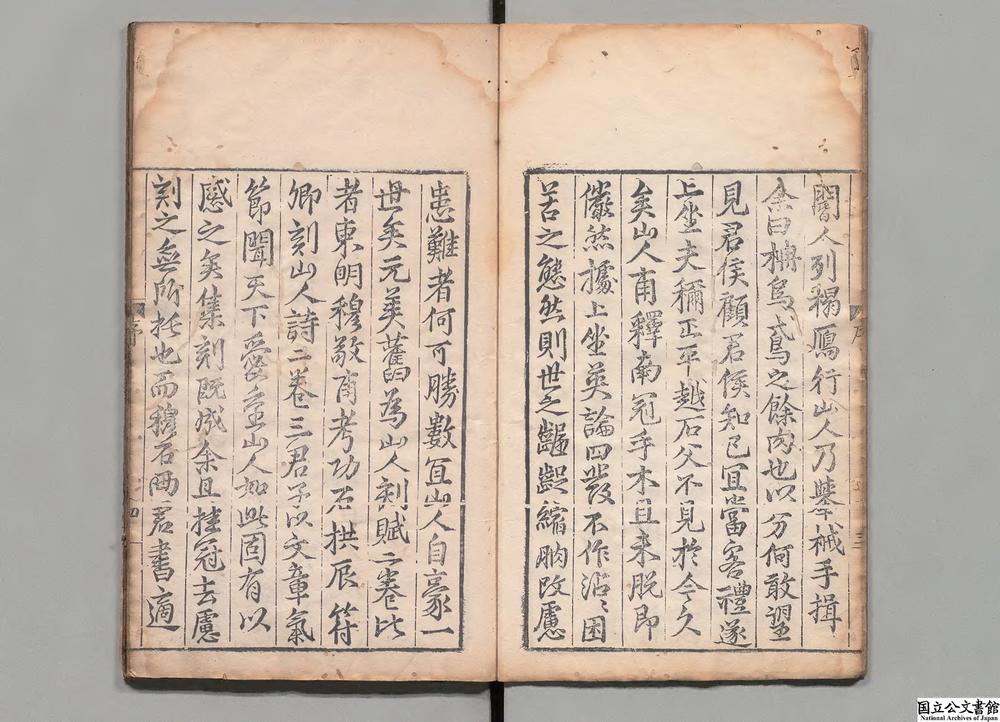 閽人列榻鴈行山人乃擧械手揖
余曰柟烏鳶之餘肉也以分何敢望
見君侯顧君侯知己宜當客禮遂
上坐夫禰正平越石父不見於今久
矣山人甫釋南冠手木且未脫即
儼然據上坐英論四發不作沾〻困
苦之態然則世之齷齪縮朒改慮
患難者何可勝數宜山人自豪一
世矣元美舊為山人刻賦二卷比
者東明穆敬甫考功石拱辰符
卿刻山人詩二卷三君子以文章氣
節聞天下愛重山人如此固有以
感之矣集刻既成余且挂冠去慮
刻之無所托也而穆石兩君書適
序
三
序
四
国立公文書館
National Archives of Japan